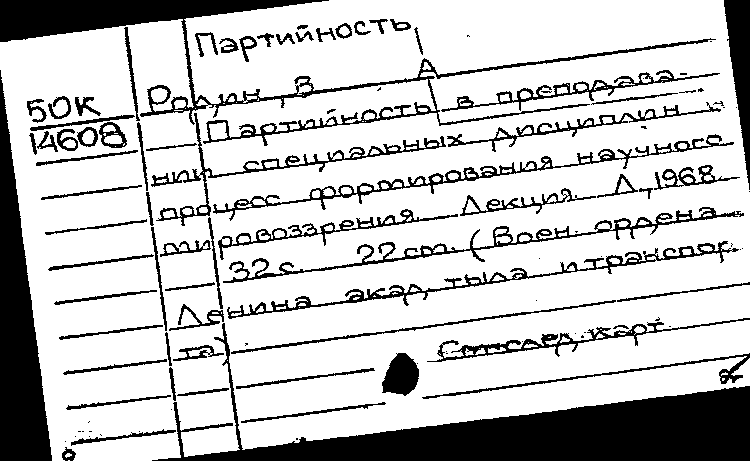 Партийность
50К
14608
Родин, В А
Партийность в преподава-
нии специальных дисциплин и
процесс формирования научного
мировоззрения. Лекция. Л., 1968.
32 с. 22 см. (Воен. ордена
Ленина акад. тыла и транспор-
та)
См. след. карт.